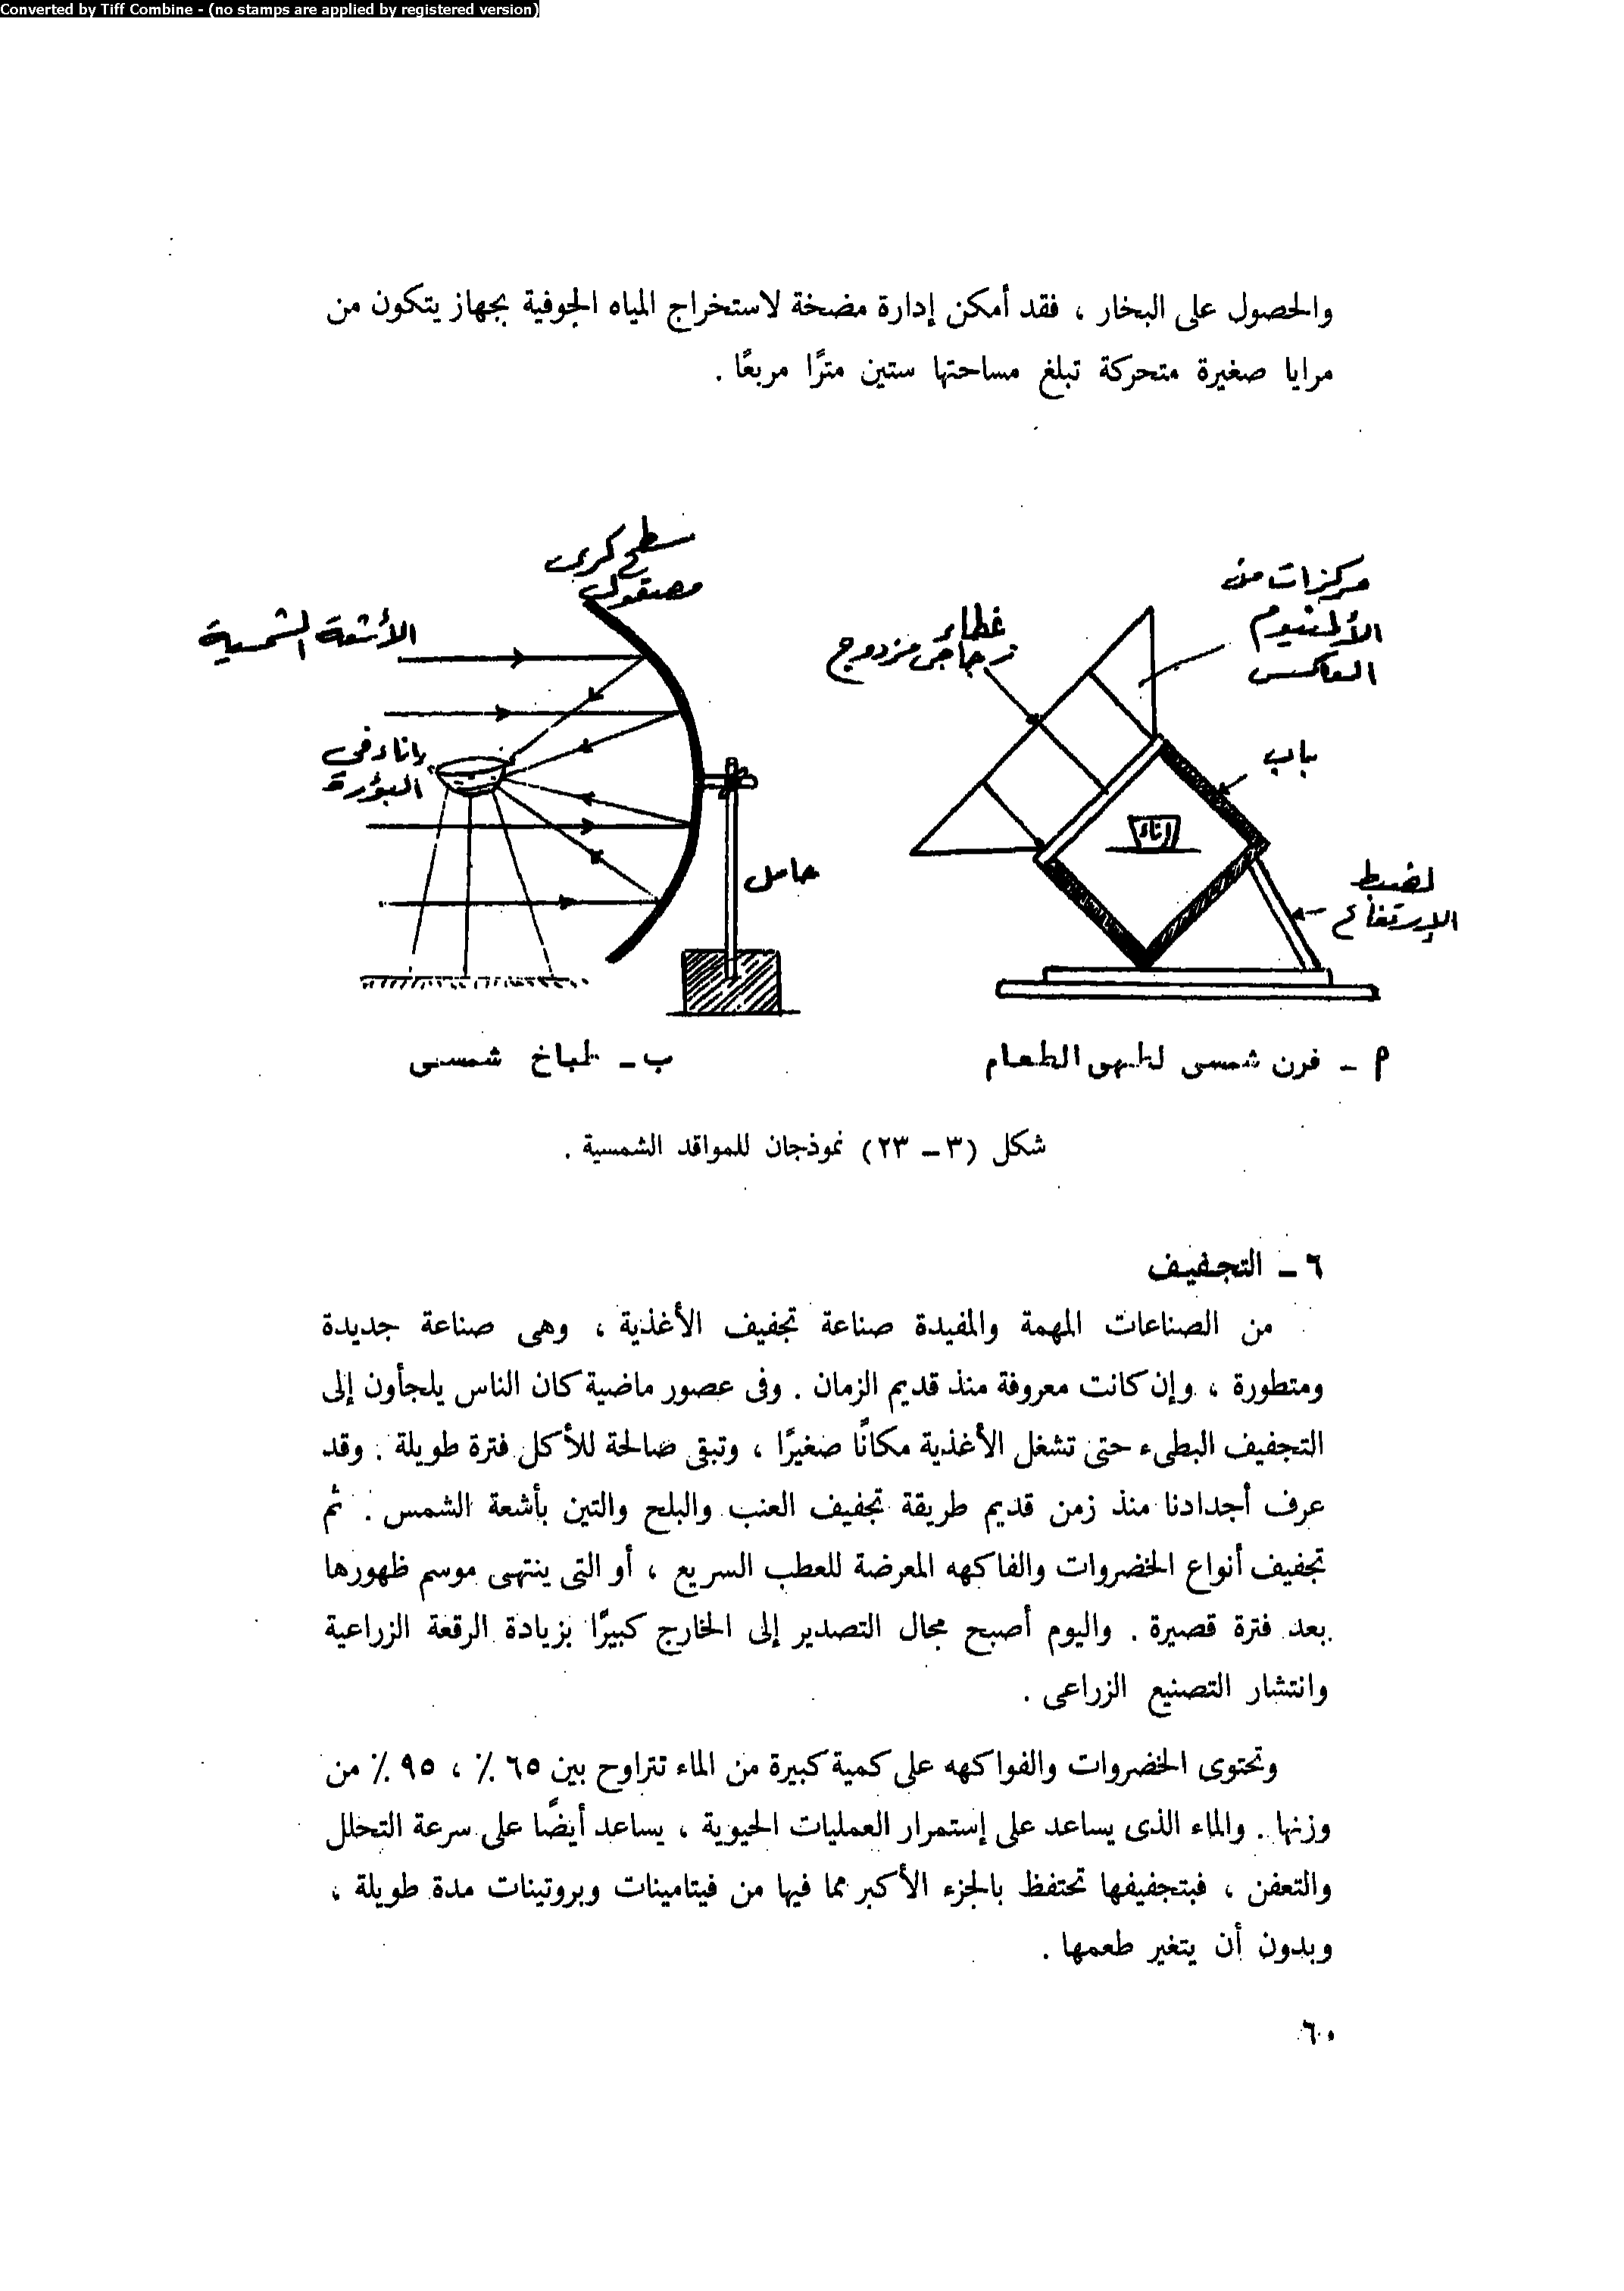 Converted by Tiff Combine - (no stamps are applied by registered version)
والحصول على البخار ، فقد أمكن إدارة مضخة لاستخراج المياه الجوفية بجهاز يتكون من
مرايا صغيرة متحركة تبلغ مساحتها ستين مترًا مربعًا .
مركزات من
الألمنيوم
العاكس
غطاء
زجاجى مزدوج
باب
إناء
لضبط
الإرتفاع
سطح كرى
مصقول
الأشعة الشمسية
إناء فى
البؤرة
حامل
أ - فرن شمسى لطهى الطعام
ب - طباخ شمسى
شكل (٣ - ٢٣) نموذجان للمواقد الشمسية .
٦ - التجفيف
من الصناعات المهمة والمفيدة صناعة تجفيف الأغذية ، وهى صناعة جديدة
ومتطورة ، وإن كانت معروفة منذ قديم الزمان . وفى عصور ماضية كان الناس يلجأون إلى
التجفيف البطىء حتى تشغل الأغذية مكانًا صغيرًا ، وتبقى صالحة للأكل فترة طويلة . وقد
عرف أجدادنا منذ زمن قديم طريقة تجفيف العنب والبلح والتين بأشعة الشمس . ثم
تجفيف أنواع الخضروات والفاكهه المعرضة للعطب السريع ، أو التى ينتهى موسم ظهورها
بعد فترة قصيرة . واليوم أصبح مجال التصدير إلى الخارج كبيرًا بزيادة الرقعة الزراعية
وانتشار التصنيع الزراعى .
وتحتوى الخضروات والفواكهه على كمية كبيرة من الماء تتراوح بين ٦٥ ٪ ، ٩٥ ٪ من
وزنها . والماء الذى يساعد على إستمرار العمليات الحيوية ، يساعد أيضًا على سرعة التحلل
والتعفن ، فبتجفيفها تحتفظ بالجزء الأكبر مما فيها من فيتامينات وبروتينات مدة طويلة ،
وبدون أن يتغير طعمها .
٦٠